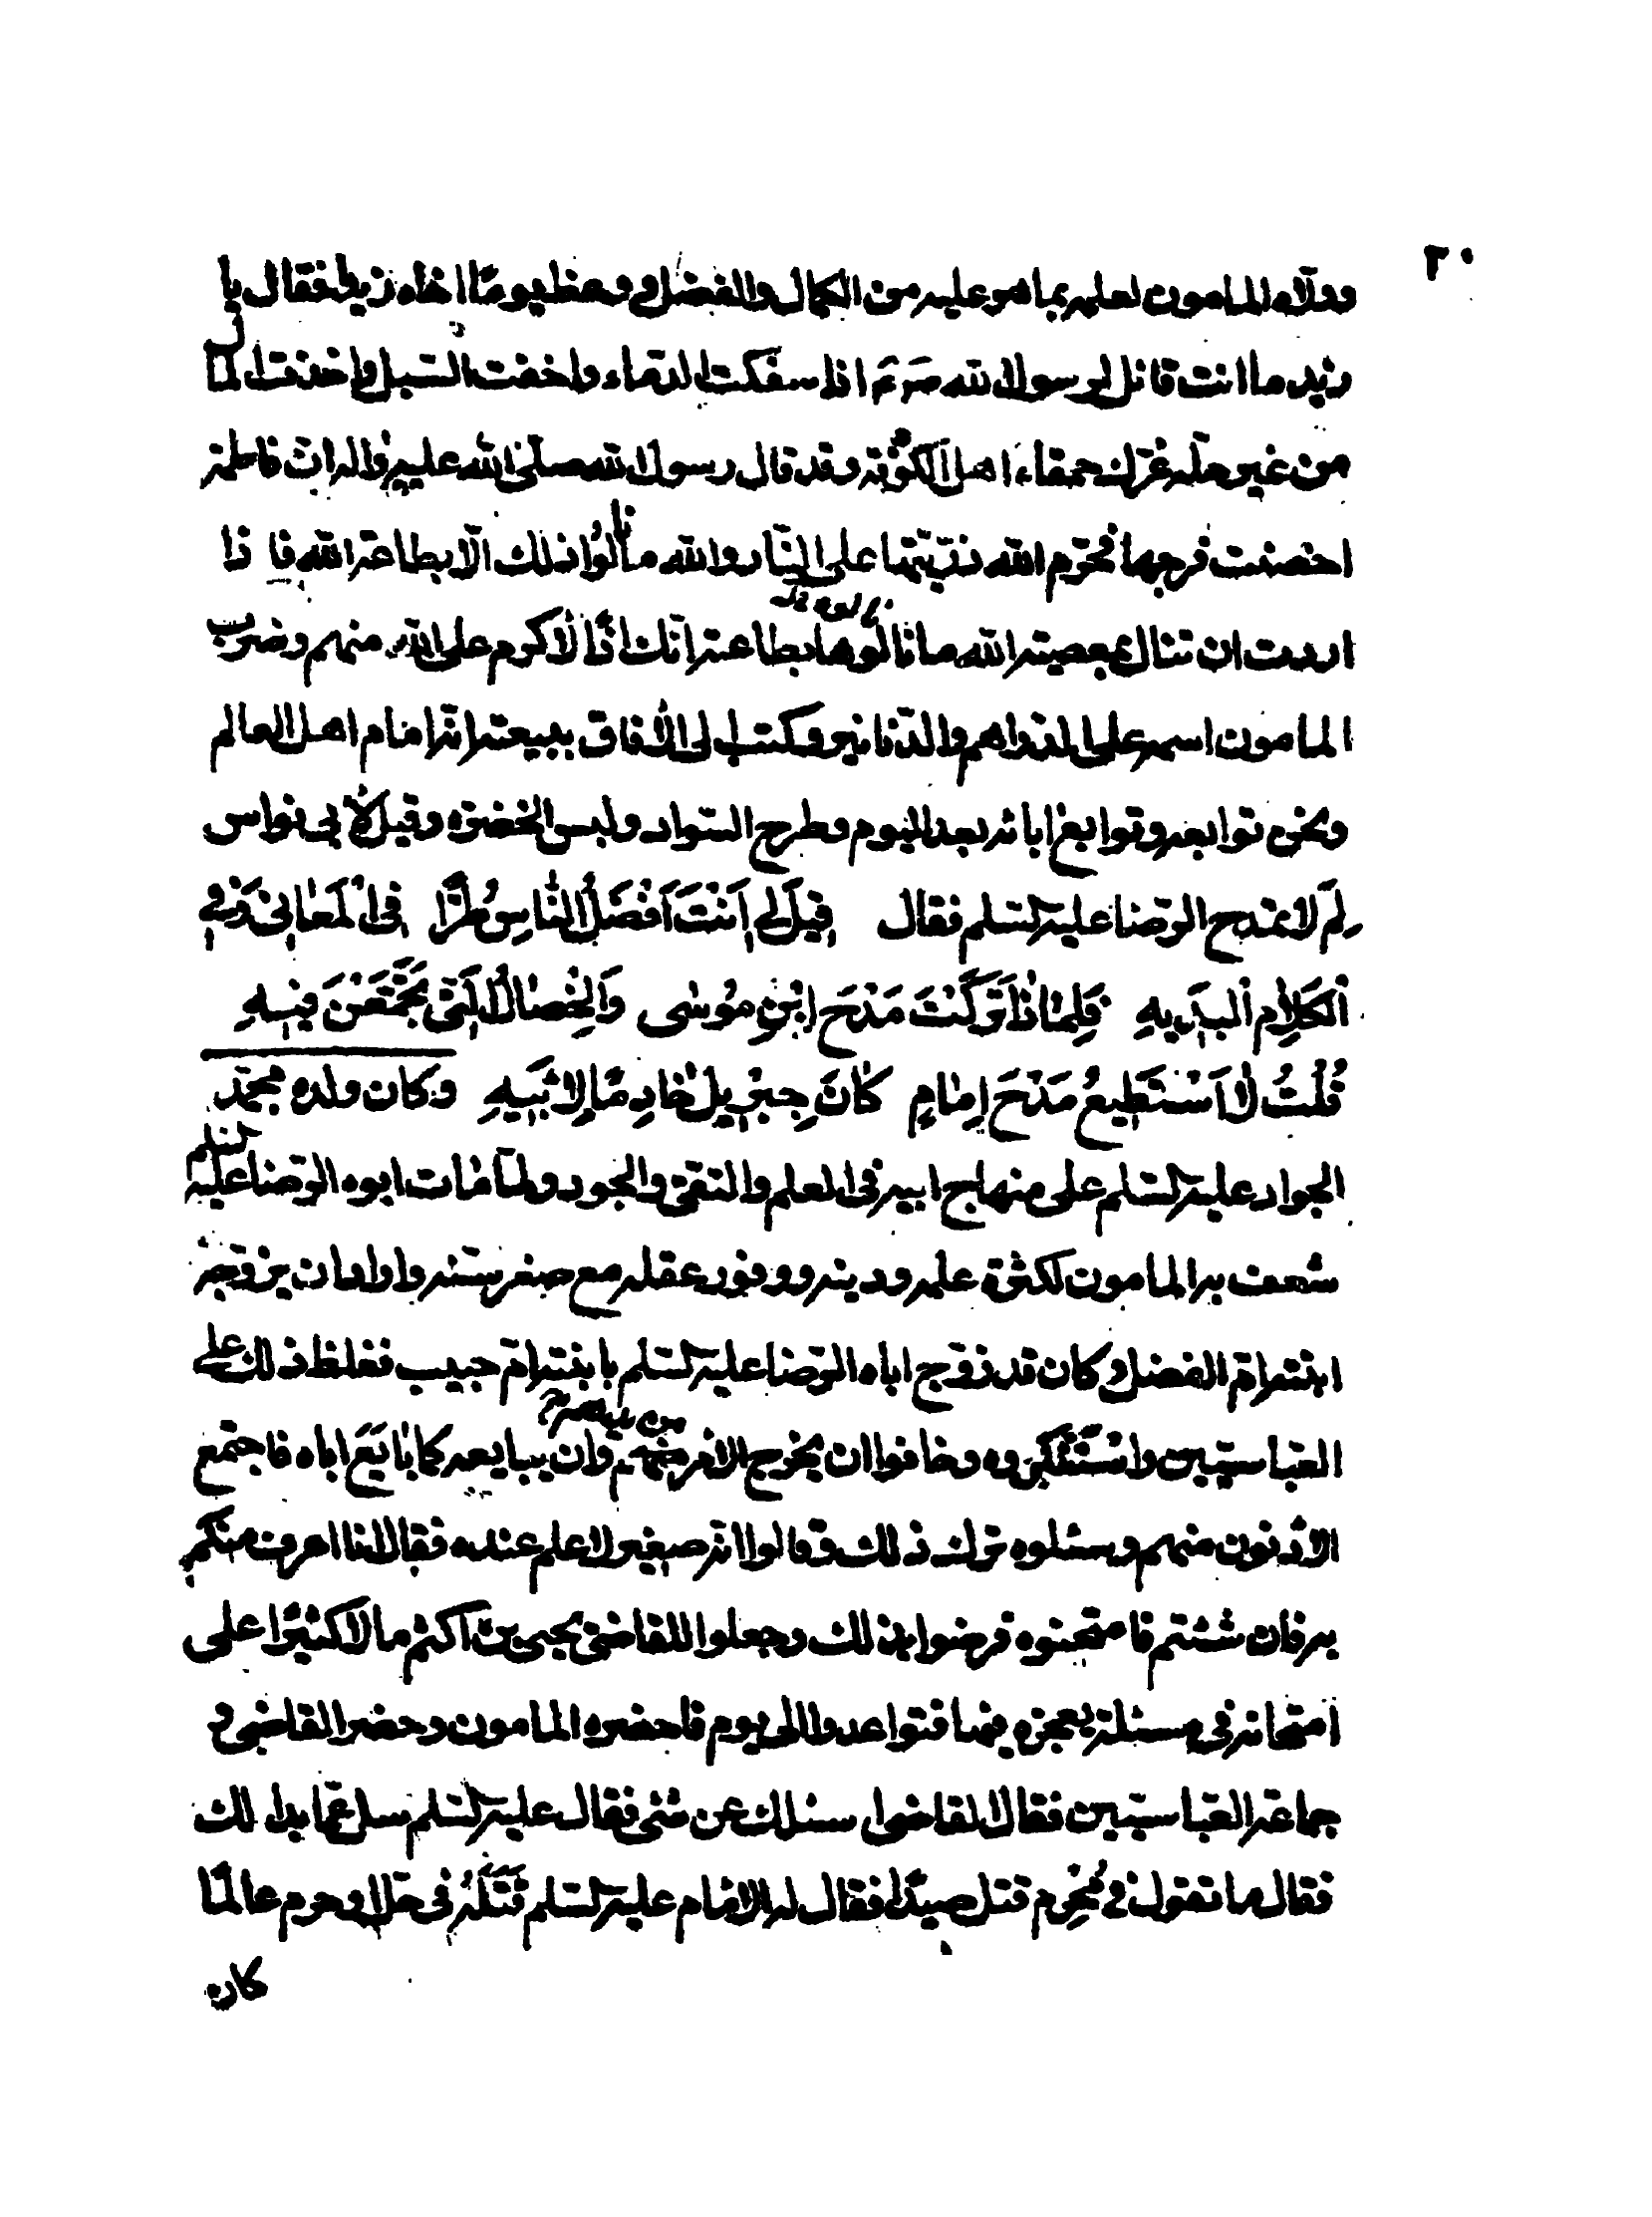 ٢٠
وولّاه المامون لعلمه بما هو عليه من الكمال والفضل ووعظ يومًا اخاه زيدا فقال يا
زيد ما انت قائل لرسول الله ص م اذا سفكت الدماء واخفت السّبل واخذت المال
من غير حلّه غرّك حمقاء اهل الكوفة وقد قال رسول الله صلى الله عليه واله ان فاطمة
احصنت فرجها فحرّم الله ذرّيّتها على النّار والله ما نالوا ذلك الّا بطاعة الله فاذا
اردت ان تنال بمعصية الله ما نالوه بطاعته انّك اذًا لاكرم على الله منهم وضرب
المامون اسمه على الدراهم والدّنانير وكتب الى الافاق ببيعته انّه امام اهل العالم
ونحن توابعه وتوابع ابائه بعد اليوم وطرح السّواد ولبس الخضرة وقيل لابى نواس
لِمَ لا تمتدح الرّضا عليه السّلم فقال قِيلَ لِي اَنْتَ اَفْضَلُ النَّاسِ طُرًّا فِى الْمَعَانِى وَفِي
اَلْكَلَامِ الْبَدِيهِ فَلِمَاذَا تَرَكْتَ مَدْحَ ابْنِ مُوسَى وَالْخِصَالَ الَّتِى تَجَمَّعْنَ فِيهِ
قُلْتُ لَا اَسْتَطِيعُ مَدْحَ اِمَامٍ كَانَ جِبْرِيلُ خَادِمًا لِاَبِيهِ وكان ولده محمّد
الجواد عليه السّلم على منهاج ابيه فى العلم والتقى والجود ولمّا مات ابوه الرّضا عليه السّلم
شعف به المامون لكثرة علمه ودينه ووفور عقله مع صغر سنّه واراد ان يزوّجه
ابنته امّ الفضل وكان قد زوّج اباه الرّضا عليه السّلم بابنته امّ حبيب فغلظ ذلك على
العبّاسيّين واستنكروه وخافوا ان يخرج الامر منهم وان يبايعه كما بايع اباه فاجتمع
الادنون منهم وسئلوه ترك ذلك وقالوا انّه صغير لا علم عنده فقال انا اعرف منكم
به فان شئتم فامتحنوه فرضوا بذلك وجعلوا للقاضى يحيى بن اكثم مالا كثيرًا على
امتحانه فى مسئلة يعجزه فيها فتواعدوا الى يوم فاحضره المامون وحضر القاضى و
جماعة العبّاسيّين فقال القاضى اسئلك عن شئ فقال عليه السّلم سل عمّا بدا لك
فقال ما تقول فى مُحْرِم قتل صيدًا فقال له الامام عليه السّلم قَتَلَهُ فى حلّ او حرم عالمًا
كان